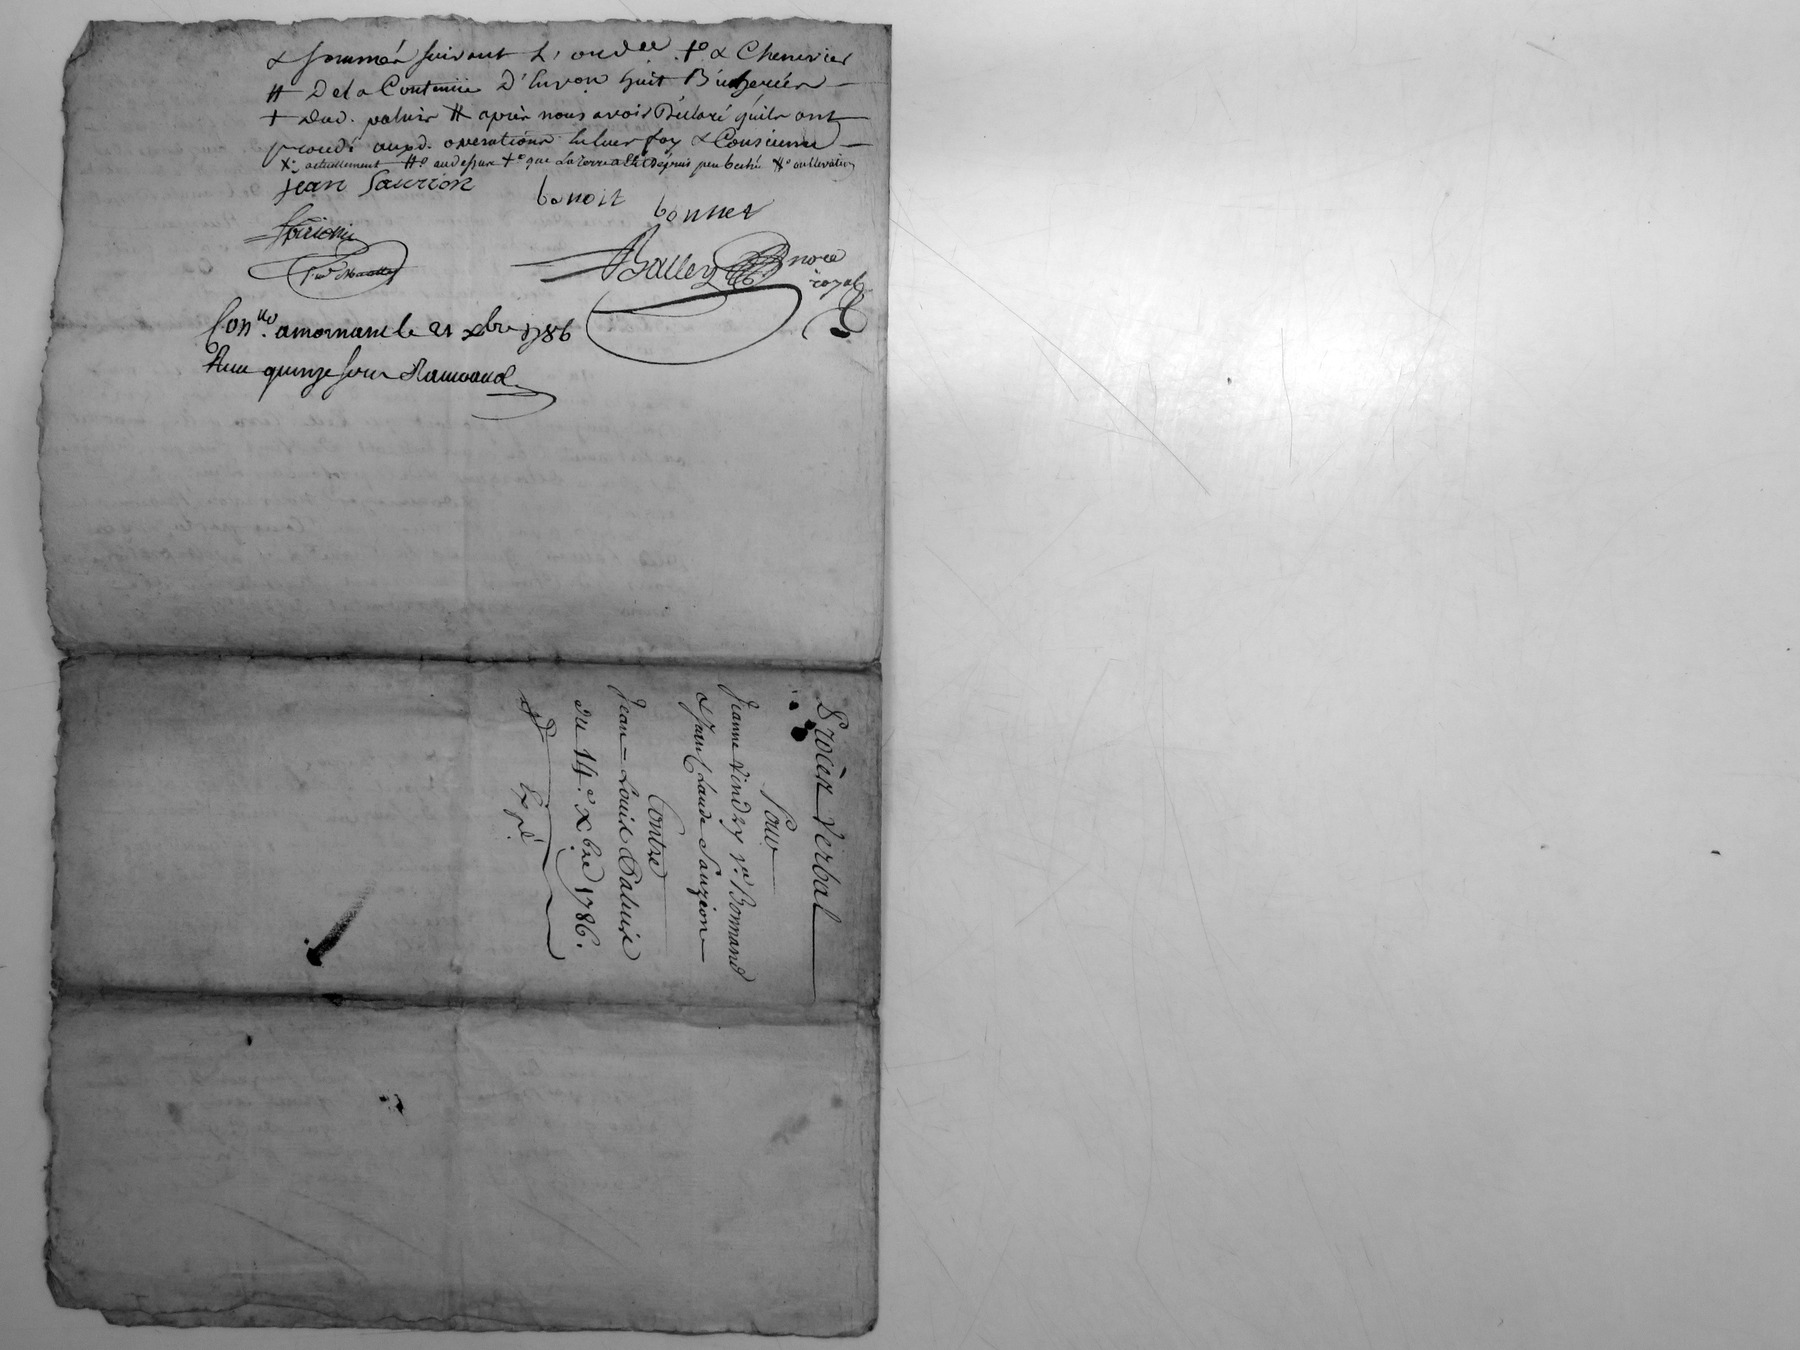 & sommés suivant l'ord.ce +° & Chenevier
# De la Contenüe D'Environ huit Bicherées —
+ Dud. paluis # après nous avoir Déclaré quils ont
procédé auxd. operations en leur foy & Conscience —
X° actuellement #° au dessus +° que la terre a été Depuis peu bechée
jean Sauzion
benoit bonnet
Balley no.re
royal
Con.llé a mornant le 21 xbre 1786
Reçu quinze sous
Procès Verbal
Pour
Jeanne Vindry v.e Bonnand
& Jean Claude Sauzion
Contre
Jean-Louis Paluis
Du 14.e xbre 1786.
Exp.é